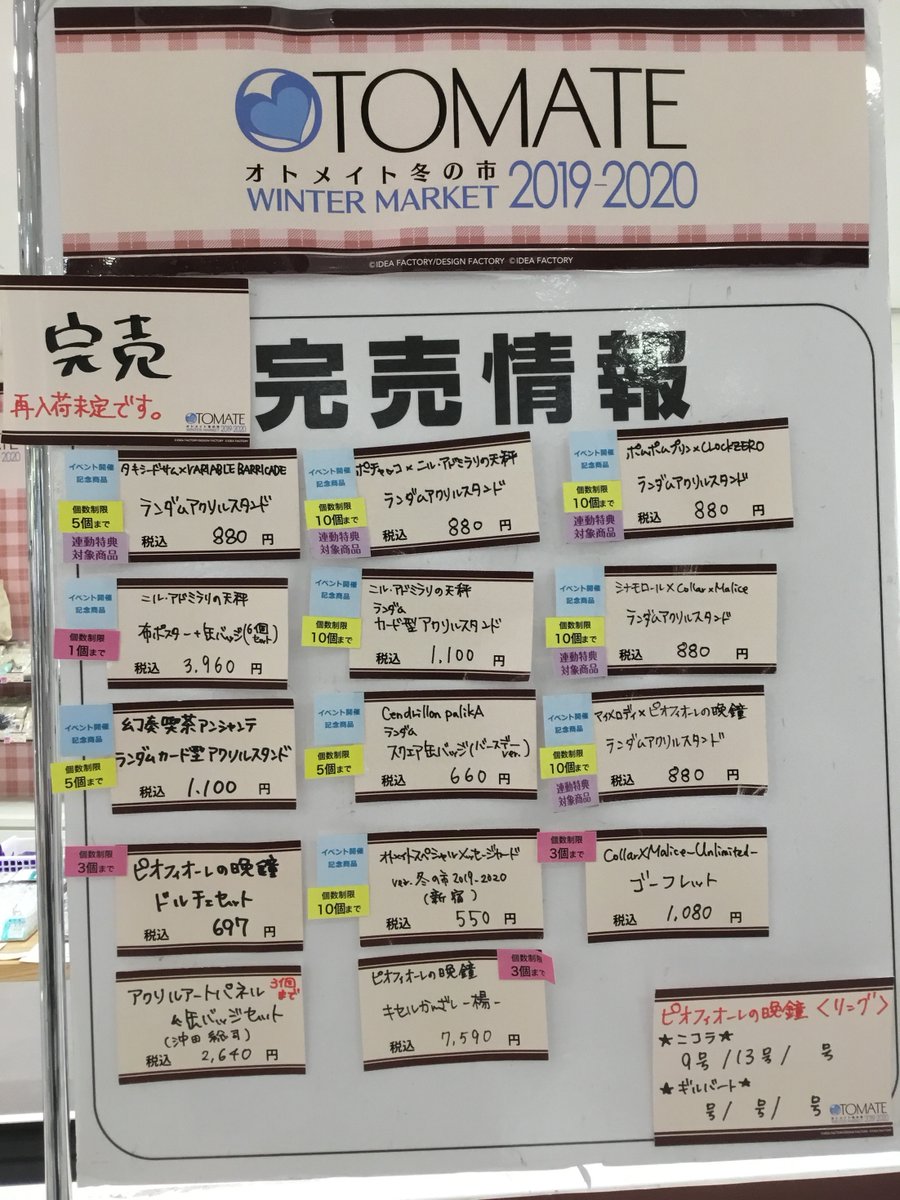 OTOMATE
オトメイト冬の市
WINTER MARKET 2019-2020
©IDEA FACTORY/DESIGN FACTORY ©IDEA FACTORY
完売
再入荷未定です。
OTOMATE
完売情報
イベント開催
記念商品
個数制限
5個まで
連動特典
対象商品
タキシードサム×VARIABLE BARRICADE
ランダムアクリルスタンド
税込 880 円
イベント開催
記念商品
個数制限
10個まで
連動特典
対象商品
ポチャッコ×ニル・アドミラリの天秤
ランダムアクリルスタンド
税込 880 円
イベント開催
記念商品
個数制限
10個まで
連動特典
対象商品
ポムポムプリン×CLOCKZERO
ランダムアクリルスタンド
税込 880 円
イベント開催
記念商品
個数制限
1個まで
ニル・アドミラリの天秤
布ポスター+缶バッジ(6個セット)
税込 3,960 円
イベント開催
記念商品
個数制限
10個まで
ニル・アドミラリの天秤
ランダム
カード型アクリルスタンド
税込 1,100 円
イベント開催
記念商品
個数制限
10個まで
連動特典
対象商品
シナモロール×Collar×Malice
ランダムアクリルスタンド
税込 880 円
イベント開催
記念商品
個数制限
5個まで
幻奏喫茶アンシャンテ
ランダムカード型アクリルスタンド
税込 1,100 円
イベント開催
記念商品
個数制限
5個まで
Cendrillon palikA
ランダム
スクエア缶バッジ(バースデーver.)
税込 660 円
イベント開催
記念商品
個数制限
10個まで
連動特典
対象商品
マイメロディ×ピオフィオーレの晩鐘
ランダムアクリルスタンド
税込 880 円
個数制限
3個まで
ピオフィオーレの晩鐘
ドルチェセット
税込 697 円
イベント開催
記念商品
個数制限
10個まで
オトメイトスペシャルメッセージカード
ver.冬の市2019-2020
(新宿)
税込 550 円
個数制限
3個まで
Collar×Malice-Unlimited-
ゴーフレット
税込 1,080 円
アクリルアートパネル
3個まで
&缶バッジセット
(沖田総司)
税込 2,640 円
個数制限
3個まで
ピオフィオーレの晩鐘
キセルかんざし-楊-
税込 7,590 円
ピオフィオーレの晩鐘〈リング〉
★ニコラ★
9号/13号/ 号
★ギルバート★
号/ 号/ 号
OTOMATE